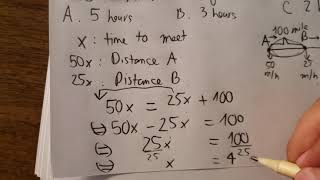 A. 5 hours   B. 3 hours   C. 2 h
x : time to meet
50x : Distance A
25x : Distance B
100 mile
A   B
50 m/h   25 m/h
50x = 25x + 100
⇔ 50x - 25x = 100
⇔ 25x/25 = 100/25
⇔ x = 4